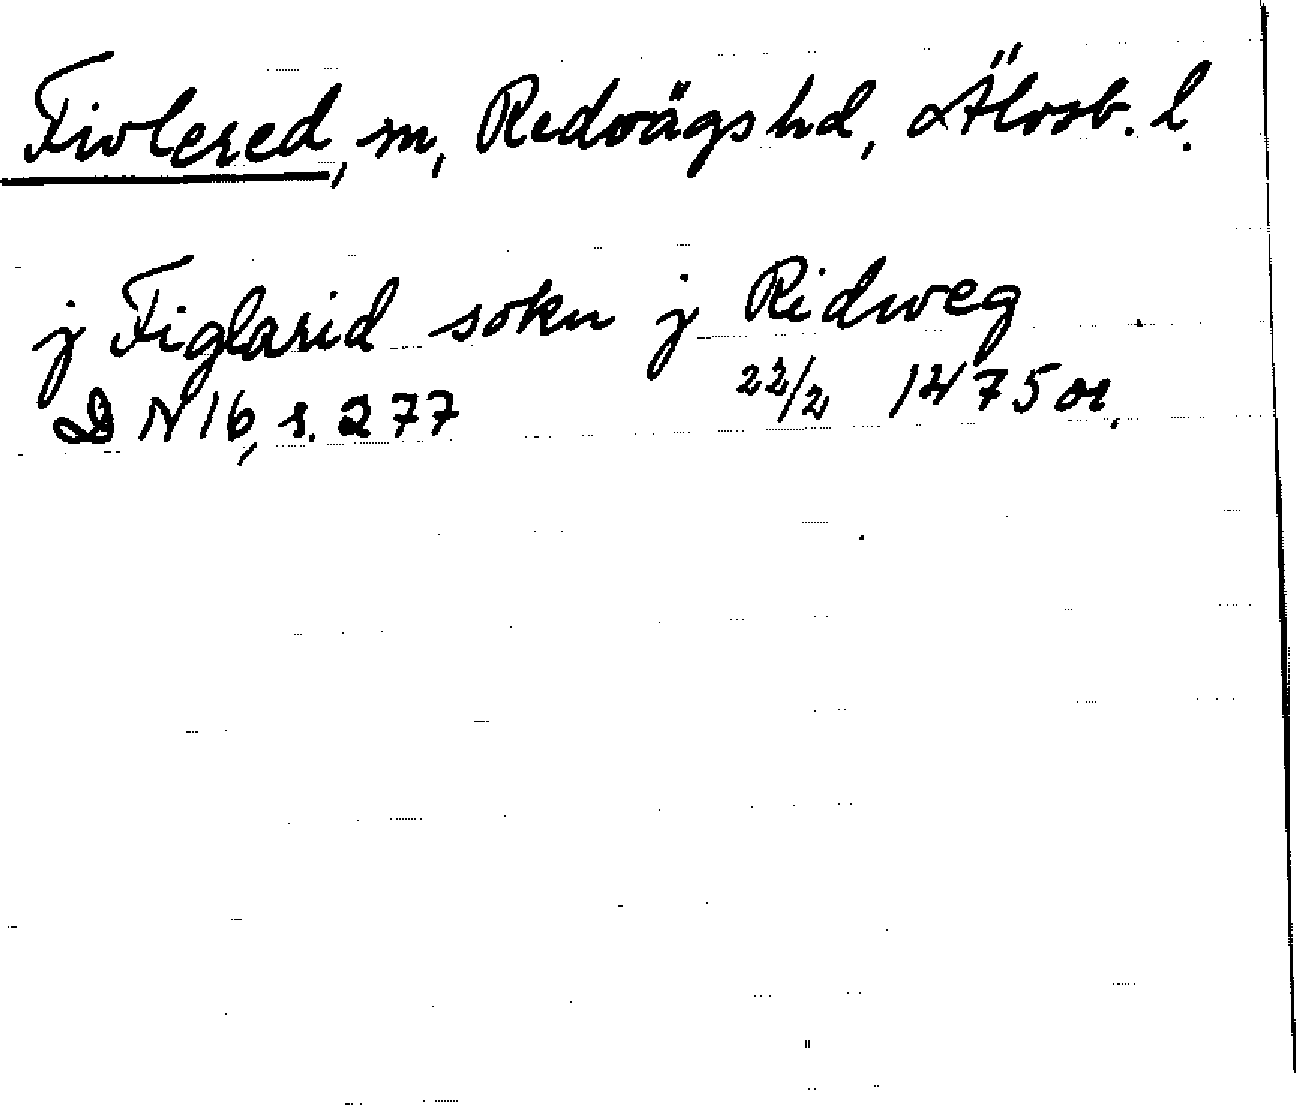 Fivlered, sn, Redvägs hd, Älvsb. l.
j Figlarid sokn j Ridweg
DN 16, s. 277 22/2 1475 or.